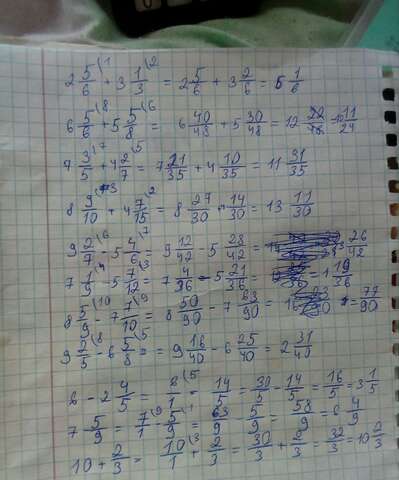 2 5/6 (1 + 3 1/3 (2 = 2 5/6 + 3 2/6 = 6 1/6
6 5/6 (8 + 5 5/8 (6 = 6 40/48 + 5 30/48 = 12 22/48 = 12 11/24
7 3/5 (7 + 4 2/7 (5 = 7 21/35 + 4 10/35 = 11 31/35
8 9/10 (3 + 4 7/15 (2 = 8 27/30 + 4 14/30 = 13 11/30
9 2/7 (6 - 5 4/6 (7 = 9 12/42 - 5 28/42 = 3 26/42
7 1/9 (4 - 5 7/12 (3 = 7 4/36 - 5 21/36 = 1 19/36
8 5/9 (10 - 7 7/10 (9 = 8 50/90 - 7 63/90 = 77/90
9 2/5 (8 - 6 5/8 (5 = 9 16/40 - 6 25/40 = 2 31/40
6 - 2 4/5 = 6/1 (5 - 14/5 = 30/5 - 14/5 = 16/5 = 3 1/5
7 5/9 = 7/1 (9 - 5/9 (1 = 63/9 - 5/9 = 58/9 = 6 4/9
10 + 2/3 = 10/1 (3 + 2/3 = 30/3 + 2/3 = 32/3 = 10 2/3